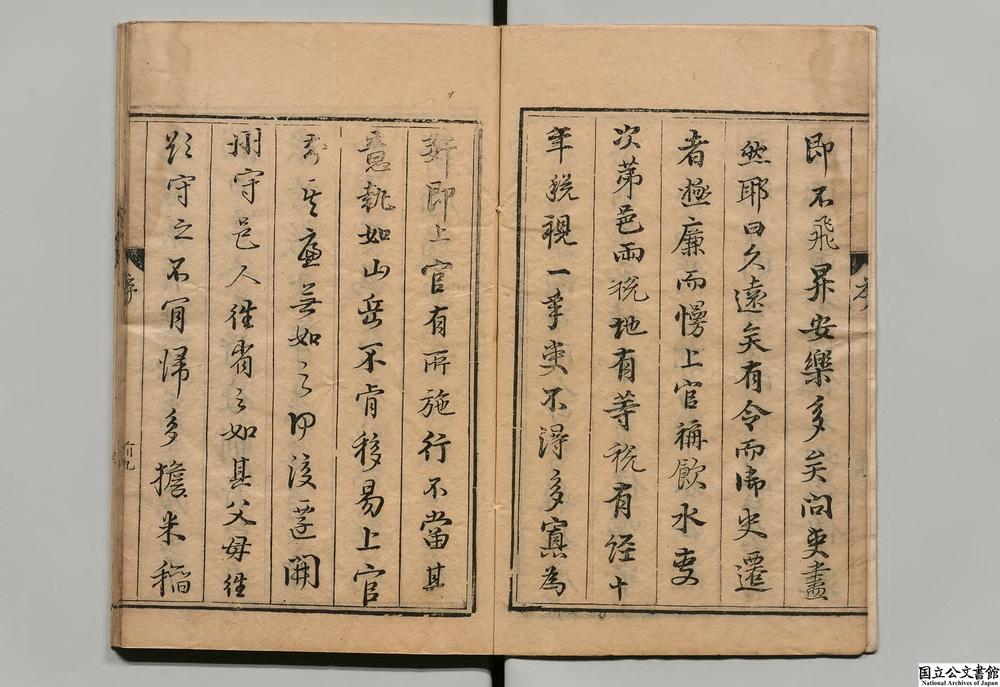 即不飛昇安樂多矣問吏盡
然耶曰久遠矣有令而御史遷
者極廉而慢上官稱飲水吏
次第邑兩税地有等税有經十
年税視一年吏不得多寡為
奸即上官有所施行不當其
意執如山岳不肯移易上官
其廉無如之何後遷開
州守邑人徃省之如其父母徃
守之不肯歸多擔米稻
序
国立公文書館
National Archives of Japan